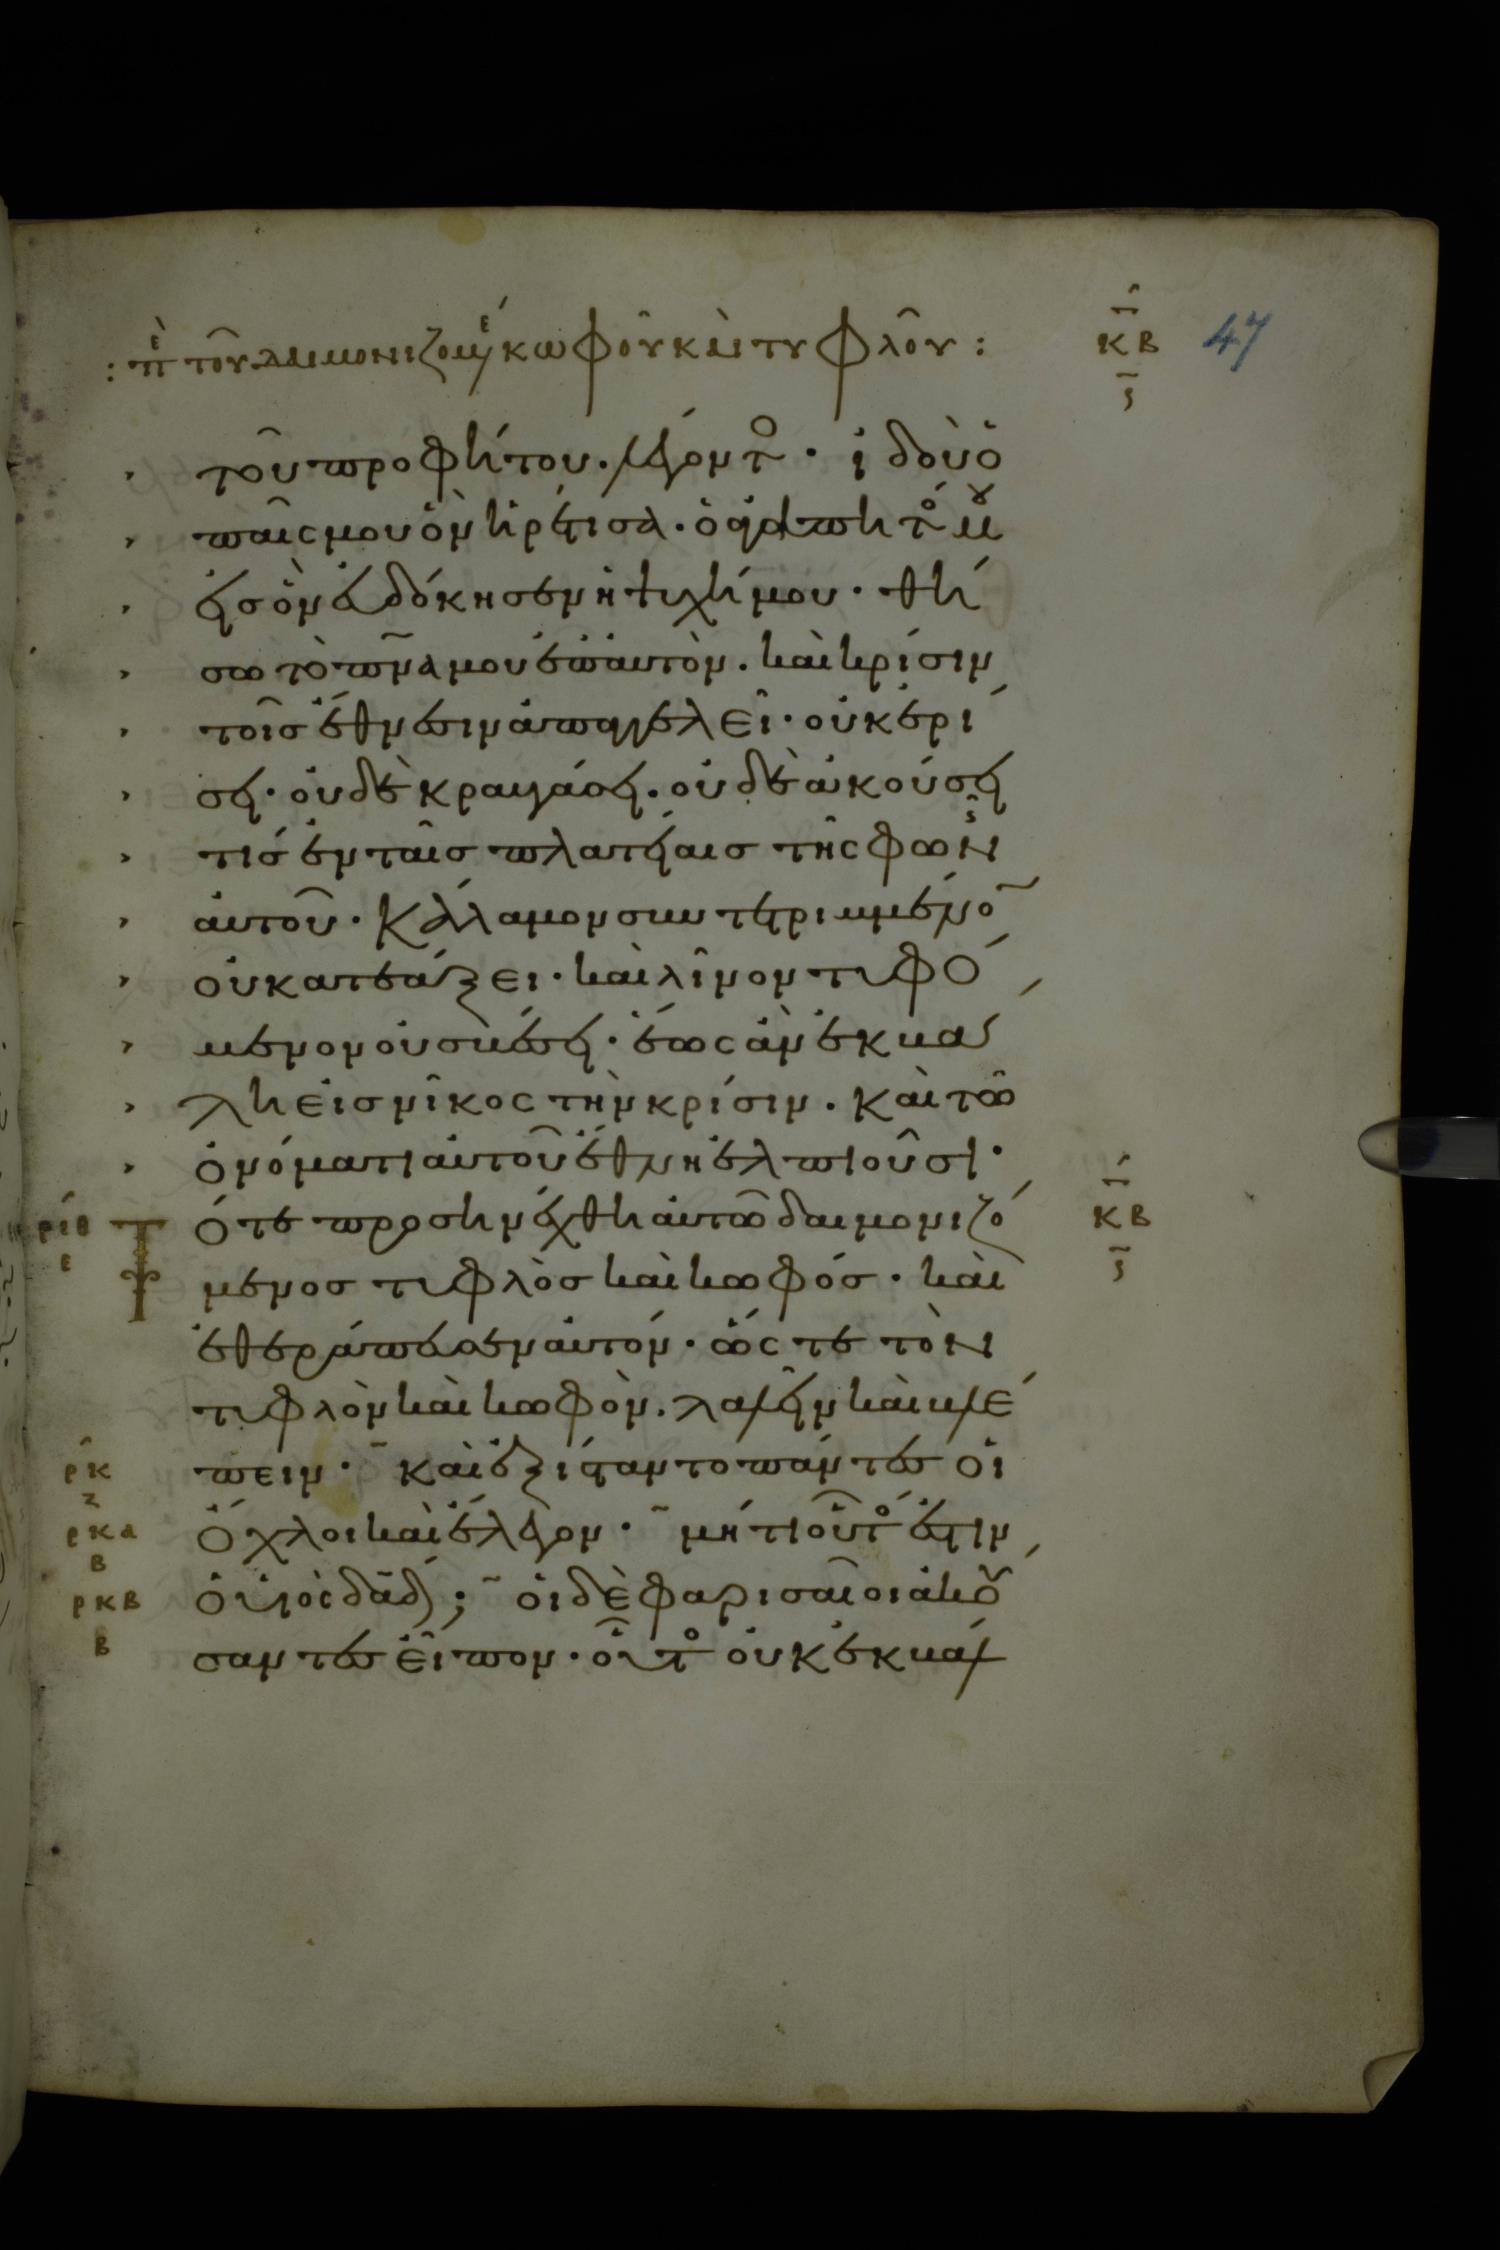 : ἐπ τοῦ δαιμονιζομέ κωφοῦ καὶ τυφλοῦ :
κβ
ς
47
τοῦ προφήτου. λέγοντο · ἰδοὺ ὁ
παῖς μου ὃν ἡρέτισα · ὁ ἀγαπητό μου
εἰς ὃν εὐδόκησεν ἡ ψυχή μου · θή
σω τὸ πνα μου ἐπ αυτὸν . καὶ κρίσιν
τοῖσ ἔθνεσιν ἀπαγγελεῖ · οὐκ ἐρί
σει · οὐδὲ κραυγάσει . οὐδὲ ἀκούσει
τισ ἐν ταῖσ πλατείαισ τῆς φωνῆς
ἀυτοῦ · Κάλαμον συντετριμμένο
οὐ κατεάξει · καὶ λῖνον τυφό
μενον οὐ σβέσει · ἕως ἂν ἐκβά
λη εἰσ νῖκος τὴν κρίσιν . Καὶ τῶ
ὀνόματι ἀυτοῦ ἔθνη ἐλπιοῦσι ·
ριθ
ε
Τότε προσηνέχθη ἀυτῶ δαιμονιζό
κβ
ς
μενοσ τυφλὸσ καὶ κωφόσ · καὶ
ἐθεράπευσεν ἀυτόν · ὥς τε τὸν
τυφλὸν καὶ κωφὸν . λαλεῖν καὶ βλέ
ρκ
ζ
πειν · Καὶ ἐξίσταντο πάντεσ οἱ
ρκα
β
ὄχλοι καὶ ἔλεγον · μήτι οὗτό ἐστιν
ρκβ
β
ὁ υἱὸς δαδ ; οἱ δὲ φαρισαῖοι ἀκού
σαντεσ εἶπον · οὗτο οὐκ ἐκβάλ